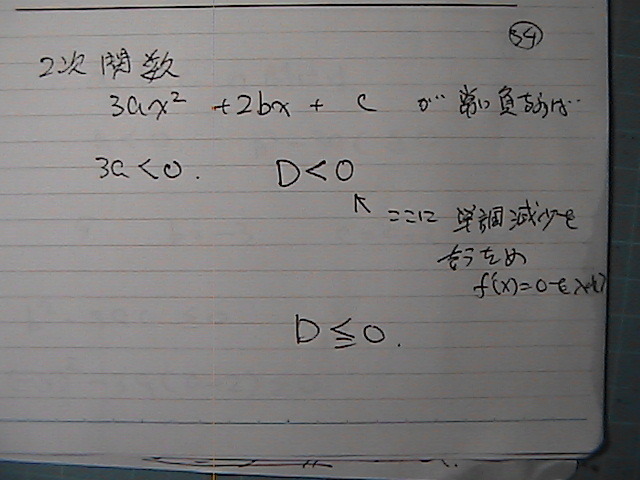 34
2次関数
3ax² +2bx + c が 常に負ならば…
3a<0. D<0
↖ ここに 単調減少も
f'(x)=0も
D≦0.